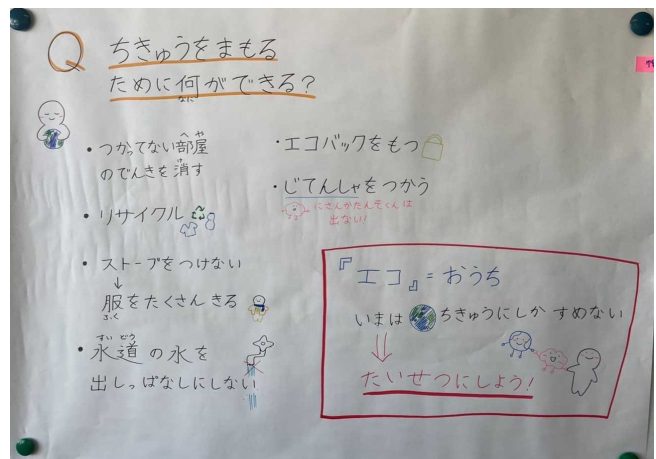 Q ちきゅうをまもる
ために何ができる?
なに
・つかってない部屋
へや
のでんきを消す
け
・リサイクル
・ストーブをつけない
↓
服をたくさんきる
ふく
・水道の水を
すいどう
出しっぱなしにしない
・エコバックをもつ
・じてんしゃをつかう
にさんかたんそくんは
出ない!
『エコ』=おうち
いまは ちきゅうにしか すめない
たいせつにしよう!